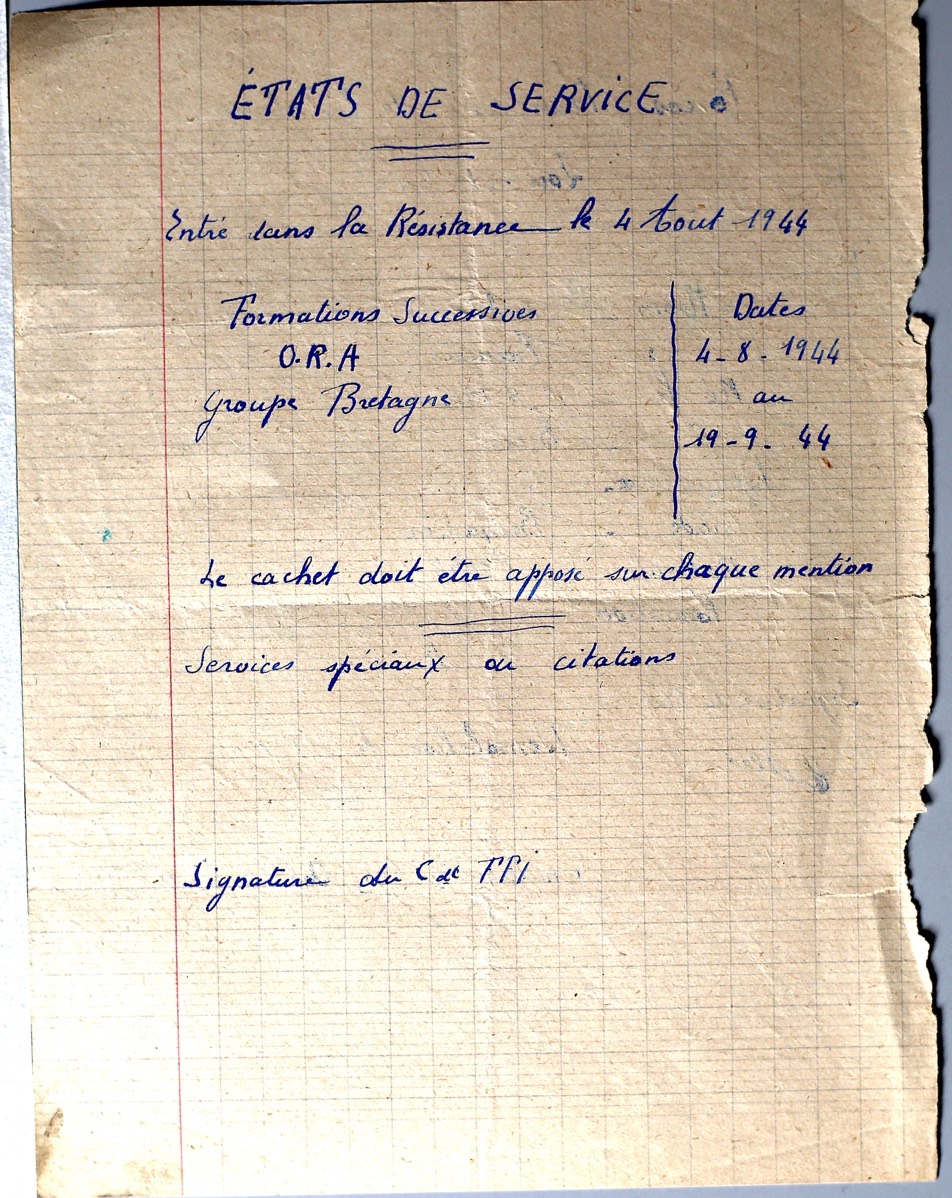 ÉTATS DE SERVICE
Entré dans la Résistance le 4 Aout 1944
Formations Successives Dates
O.R.A 4-8-1944
Groupe Bretagne au
19-9-44
Le cachet doit être apposé sur chaque mention
Services spéciaux ou citations
Signature du Cdt FFi